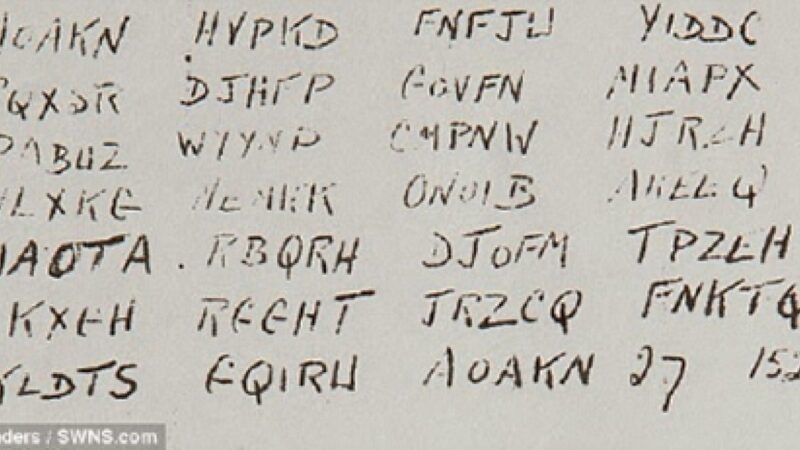 AOAKN HVPKD FNFJW YIDDC
RQXSR DJHFP GOVFN MIAPX
PABUZ WYYNP CMPNW HJRZH
NLXKG MEMKK ONOIB AKEEQ
UAOTA RBQRH DJOFM TPZEH
KXGH RGGHT JRZCQ FNKTQ
KLDTS GQIRU AOAKN 27 152
nders / SWNS.com